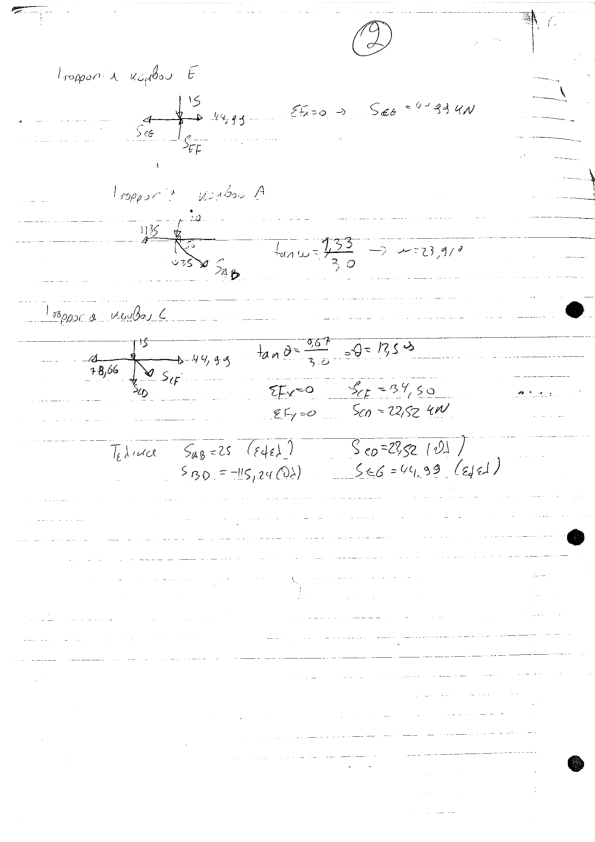 2
Ισορροπία κόμβου E
15
44,99
S_CE
S_EF
ΣFx=0 → 
Ισορροπία κόμβου A
1135
S_AB
tan ω = 1,33 / 3,0 → ω = 23,91°
Ισορροπία κόμβου C
15
78,66
44,99
S_CF
S_CD
tan θ = 0,67 / 3.0
ΣFx=0 S_CF = 34,50
ΣFy=0 S_CD = 22,52 kN
Τελικα S_AB = 25 (εφελ) S_CD = 22,52 (θλ)
S_BD = -115,24 (θλ) S_EG = 44,99 (εφελ)